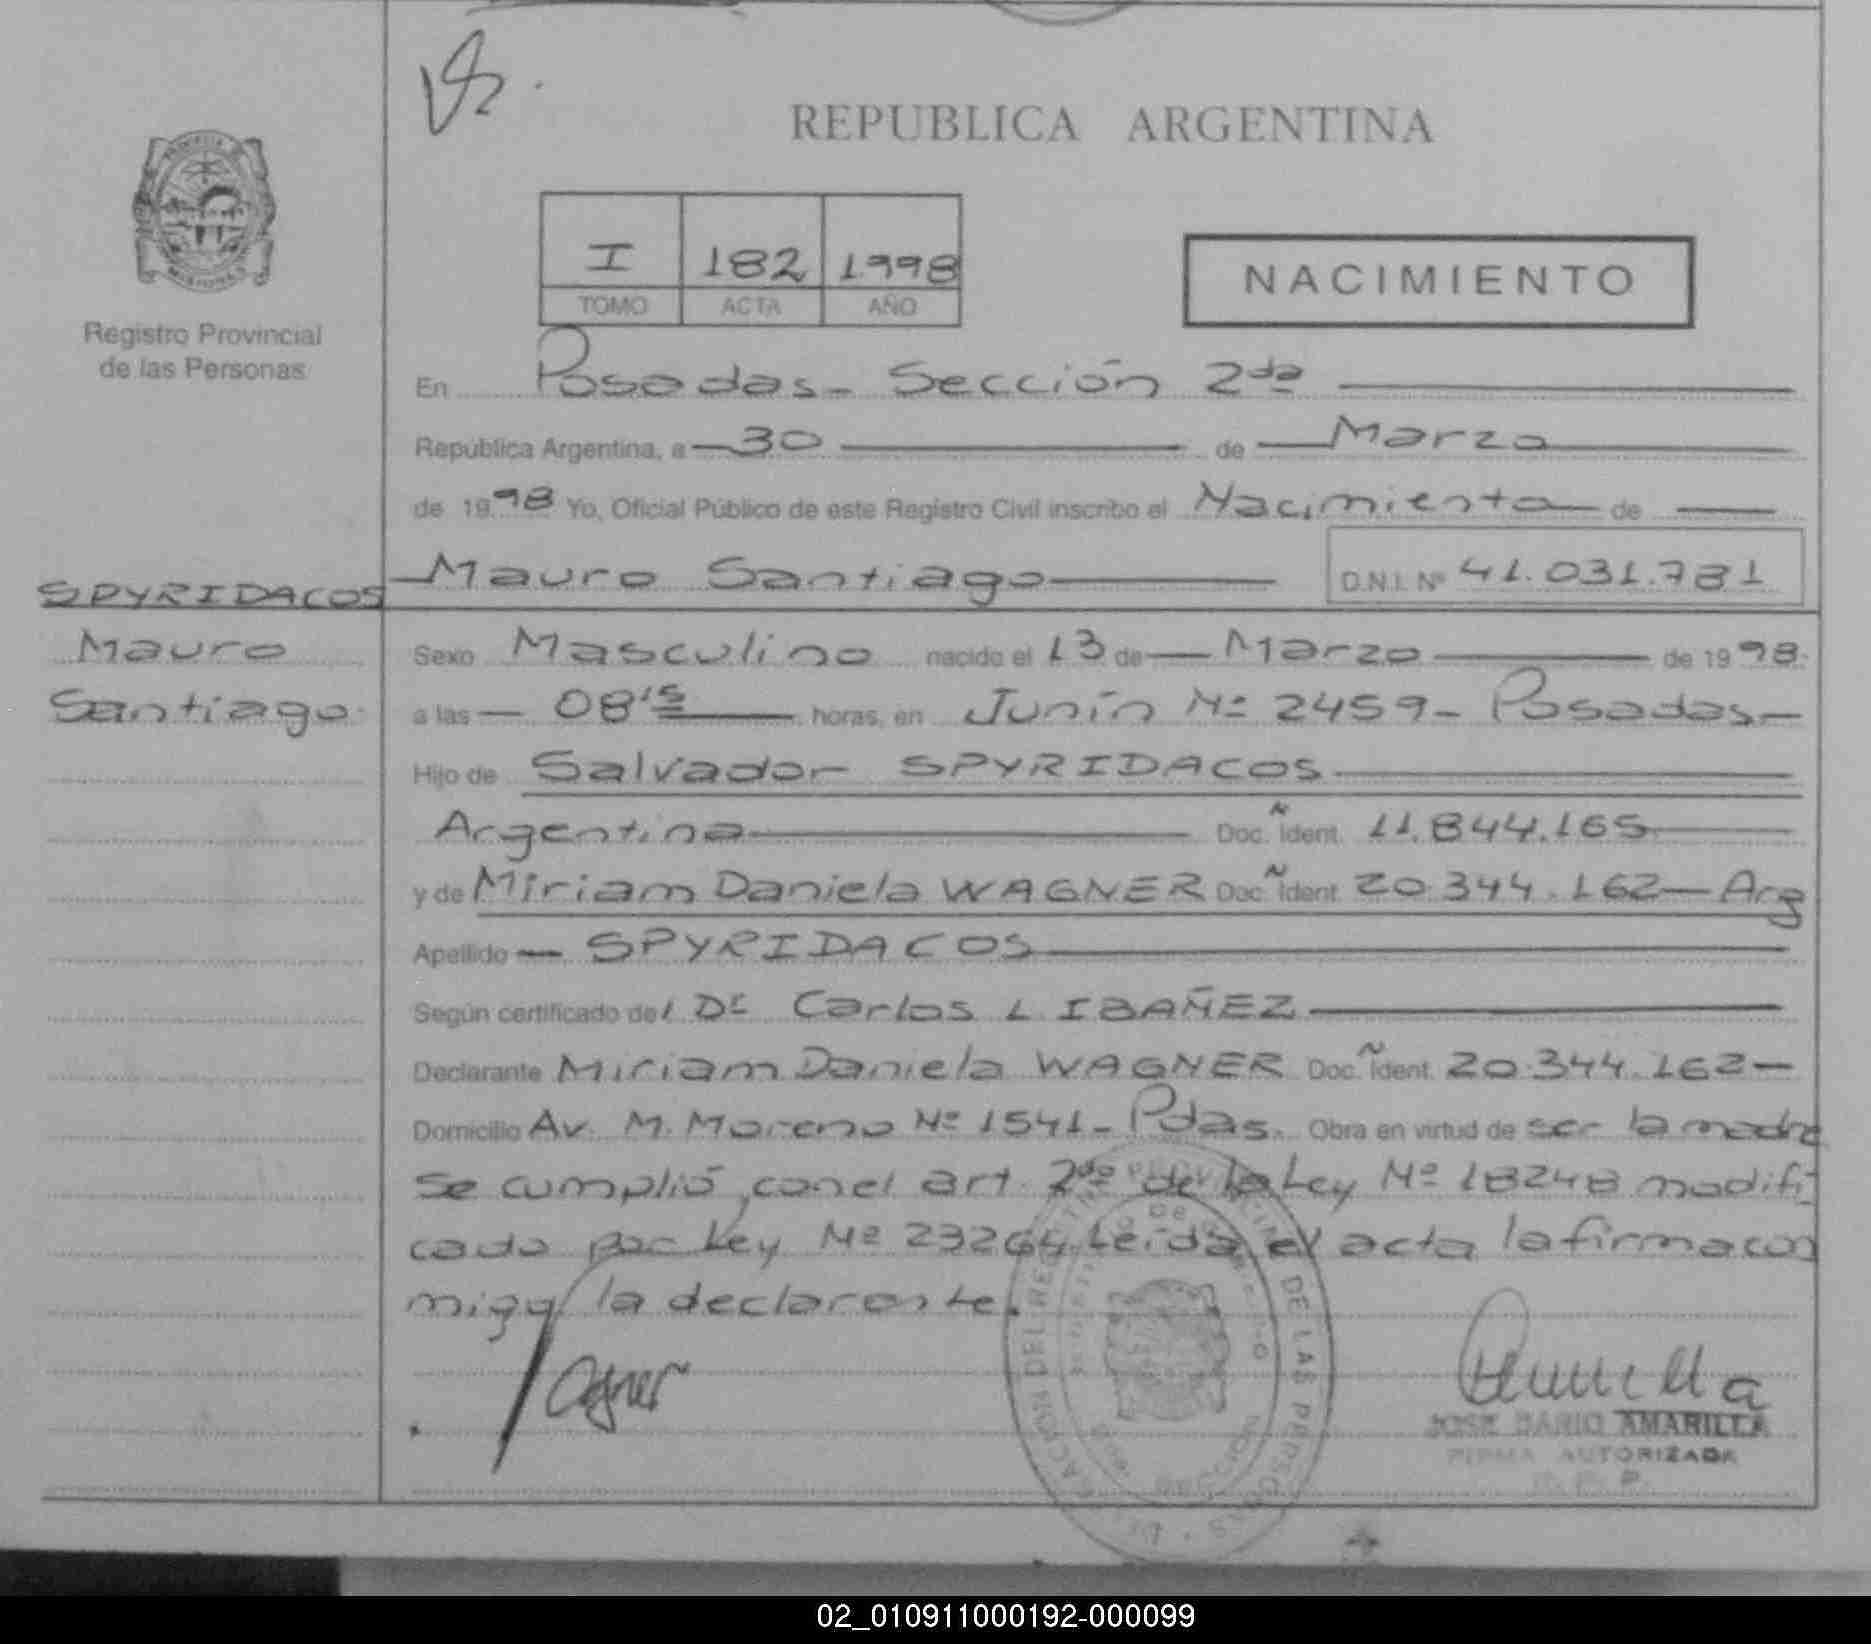 REPUBLICA ARGENTINA
I 182 1998
TOMO ACTA AÑO
NACIMIENTO
Registro Provincial
de las Personas
En Posadas - Sección 2da
República Argentina, a 30 de Marzo
de 1998 Yo, Oficial Público de este Registro Civil inscribo el Nacimiento de
Mauro Santiago D.N.I. Nº 41.031.781
SPYRIDACOS
Mauro
Santiago
Sexo Masculino nacido el 13 de Marzo de 1998.
a las 08'15 horas, en Junín Nº 2459 - Posadas -
Hijo de Salvador SPYRIDACOS
Argentina Doc. Ident. 11.844.165
y de Miriam Daniela WAGNER Doc. Ident. 20.344.162 - Arg
Apellido SPYRIDACOS
Según certificado del Dr Carlos L IBAÑEZ
Declarante Miriam Daniela WAGNER Doc. Ident. 20.344.162 -
Domicilio Av. M. Moreno Nº 1541 - Pdas. Obra en virtud de ser la madre
se cumplió con el art. 2do de la Ley Nº 18248 modifi
cado por Ley Nº 23264 Leída el acta la firma con
migo la declarante.
Wagner
JOSE DARIO AMARILLA
FIRMA AUTORIZADA
R. P. P.
DE LAS PERSONAS
SECCION
02_010911000192-000099